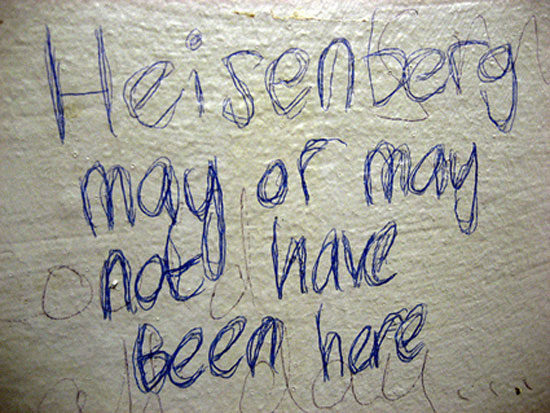 Heisenberg
may or may
not have
been here